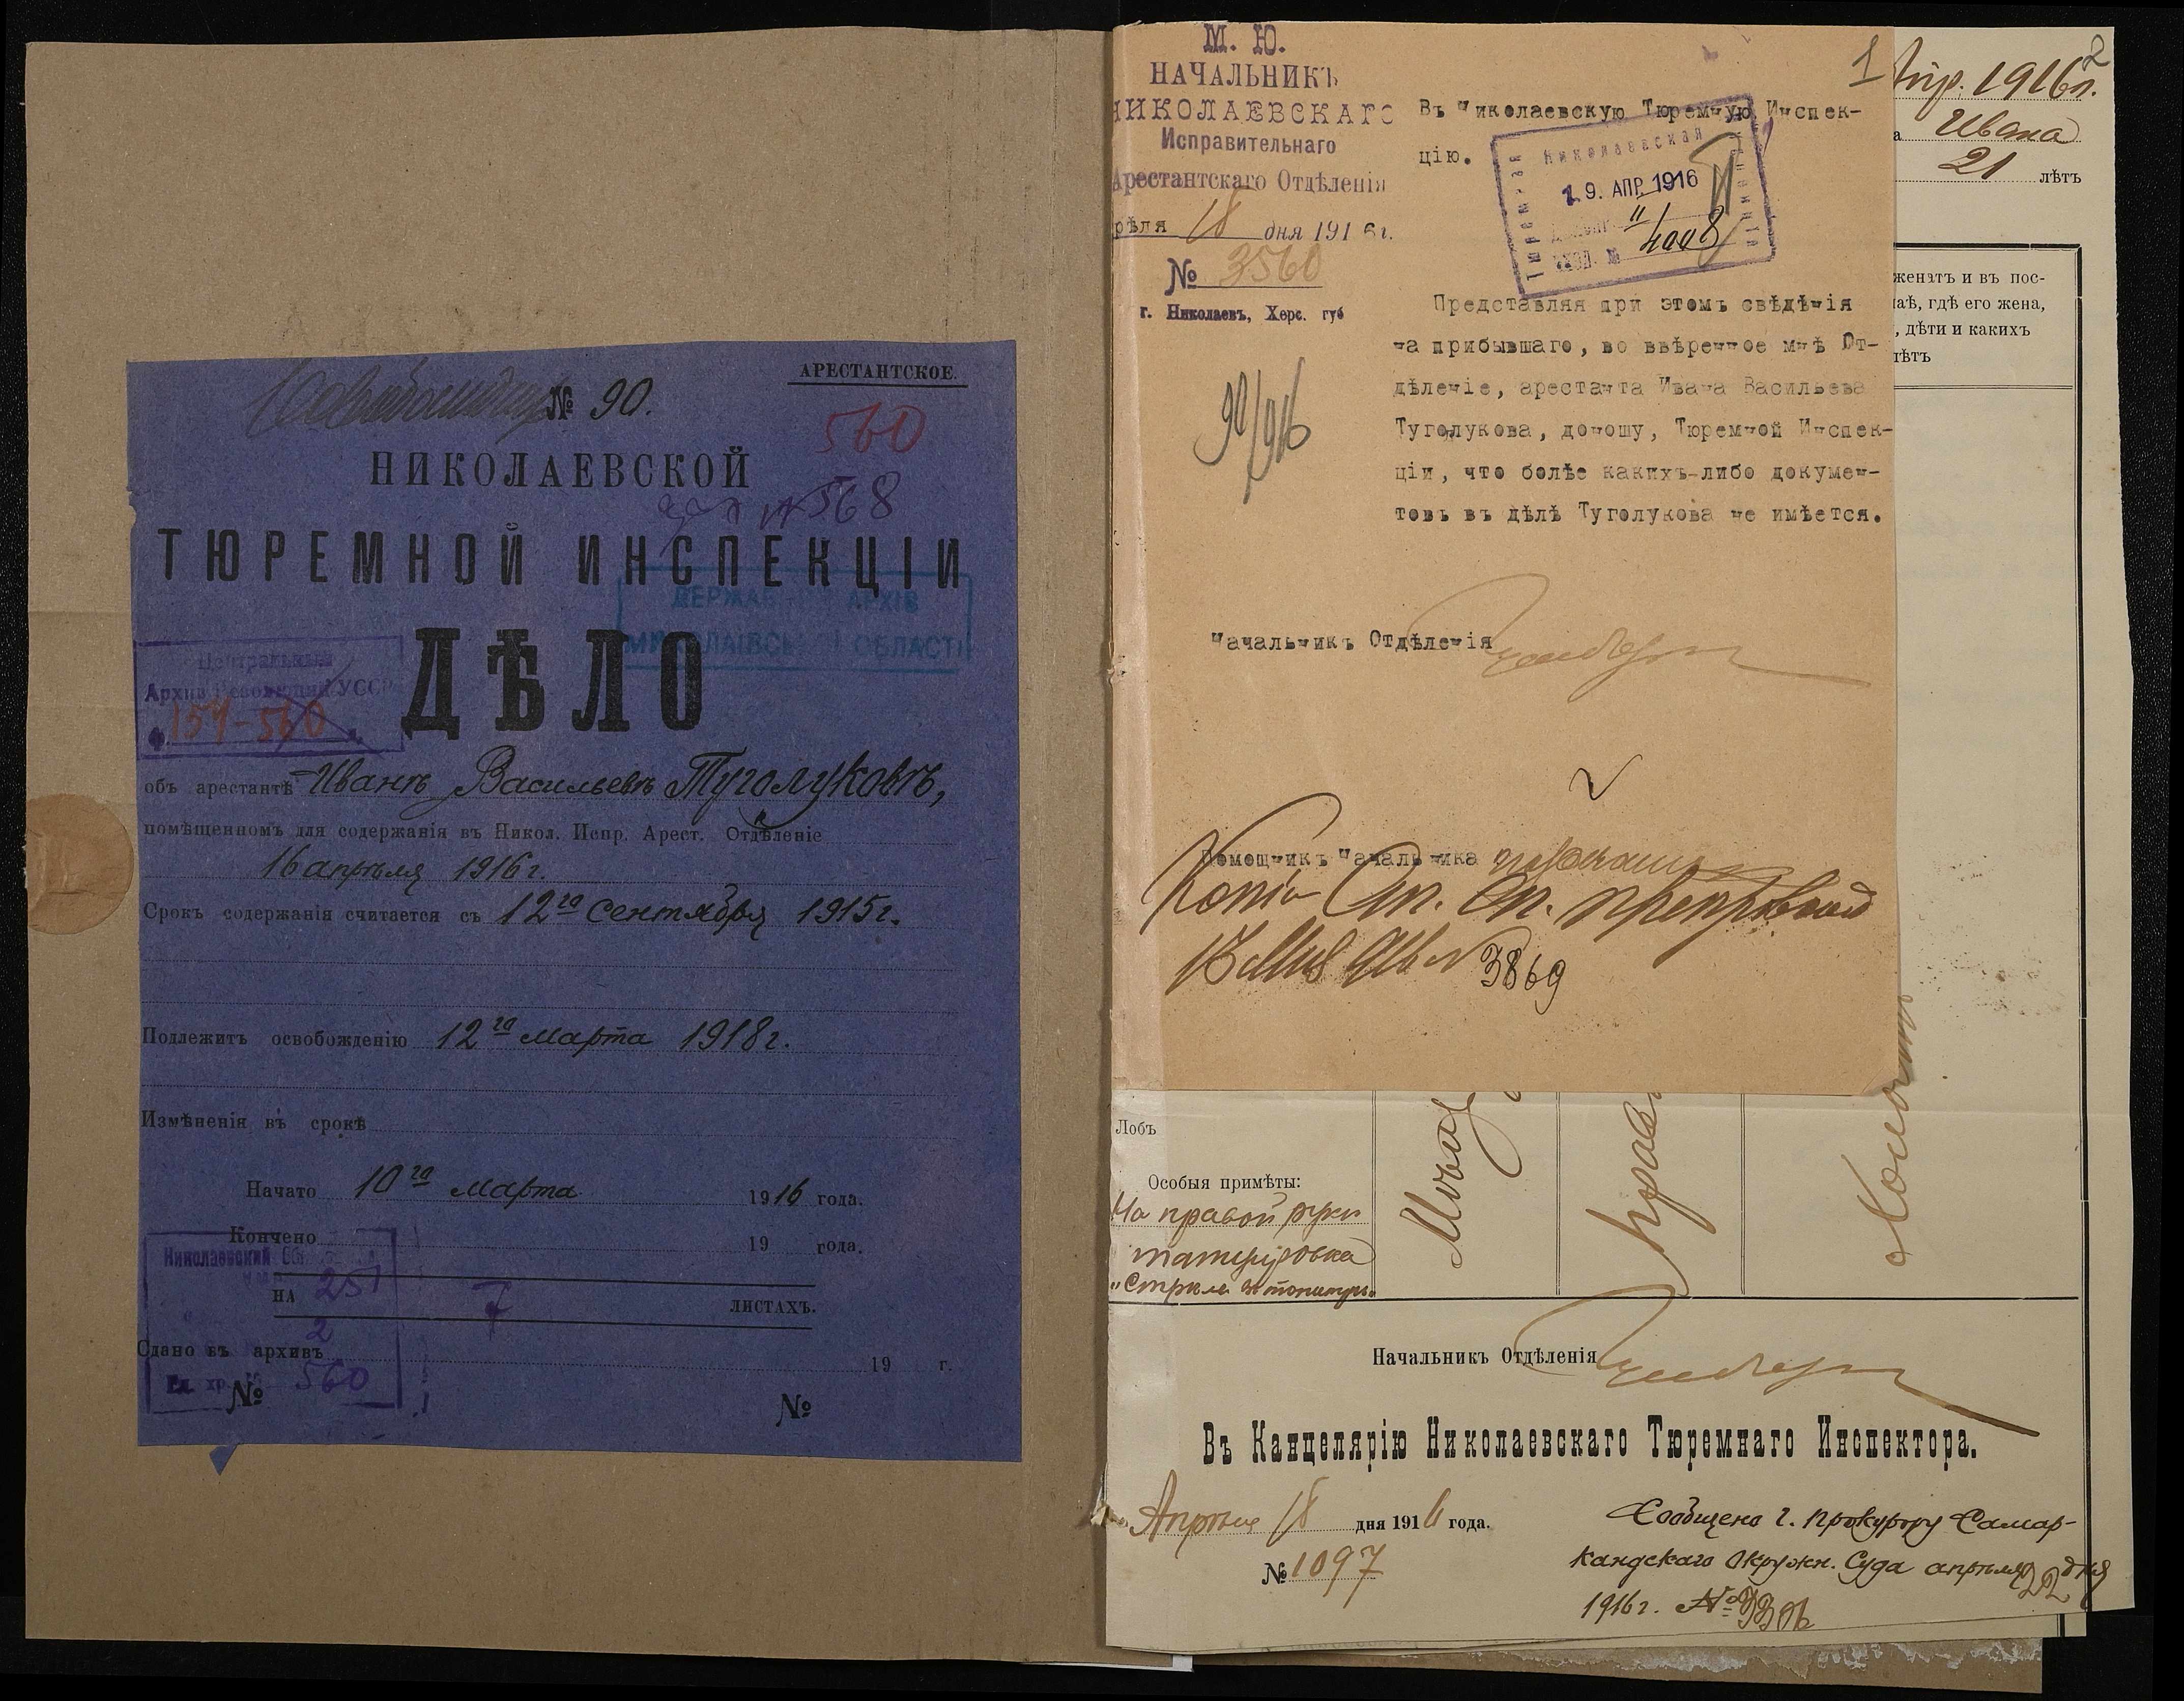 АРЕСТАНТСКОЕ.
№ 90.
560
НИКОЛАЕВСКОЙ
№ 568
ТЮРЕМНОЙ ИНСПЕКЦІИ
ДЕРЖАВ АРХІВ
МИКОЛАЇВСЬ ОБЛАСТІ
ДѢЛО
Центральный
Архив Революции УССР
157-560
объ арестантѣ Иванѣ Васильевѣ Туголуковѣ,
помѣщенномъ для содержанія въ Никол. Испр. Арест. Отдѣленіе
16 апрѣля 1916 г.
Срокъ содержанія считается съ 12го Сентября 1915 г.
Подлежитъ освобожденію 12го Марта 1918 г.
Измѣненія въ срокѣ
Начато 10го Марта 1916 года.
Кончено 19 года.
Николаевский
251
НА 7 ЛИСТАХЪ.
2
Сдано въ архивъ 19 г.
Ед. хр. 560
№ №
М. Ю.
НАЧАЛЬНИКЪ
НИКОЛАЕВСКАГО
Исправительнаго
Арестантскаго Отдѣленія
рѣля 18 дня 1916 г.
№ 3560
г. Николаевъ, Херс. губ
90/916
1
Въ Николаевскую Тюремную Инспек-
цію.
Николаевская
19. АПР. 1916
4008
Представляя при этомъ свѣдѣнія
на прибывшаго, во ввѣренное мнѣ От-
дѣленіе, арестанта Ивана Васильева
Туголукова, доношу, Тюремной Инспек-
ціи, что болѣе какихъ-либо докумен-
товъ въ дѣлѣ Туголукова не имѣется.
Начальникъ Отдѣленія
Помощникъ Начальника
Копія
3869
2
Апр. 1916 г.
а Ивана
21 лѣтъ
женатъ и въ пос-
лаѣ, гдѣ его жена,
, дѣти и какихъ
лѣтъ
Лобъ
Особыя примѣты:
На правой руки
татуировка
Начальникъ Отдѣленія
Въ Канцелярію Николаевскаго Тюремнаго Инспектора.
Апрѣля 18 дня 1916 года.
№ 1097
Сообщено г. Прокурору Самар-
кандскаго Окружн. Суда апрѣля 22 дня
1916 г. №